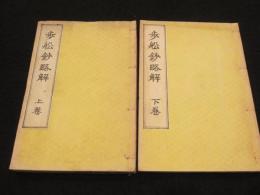 歩船鈔略解 下巻
歩船鈔略解 上巻